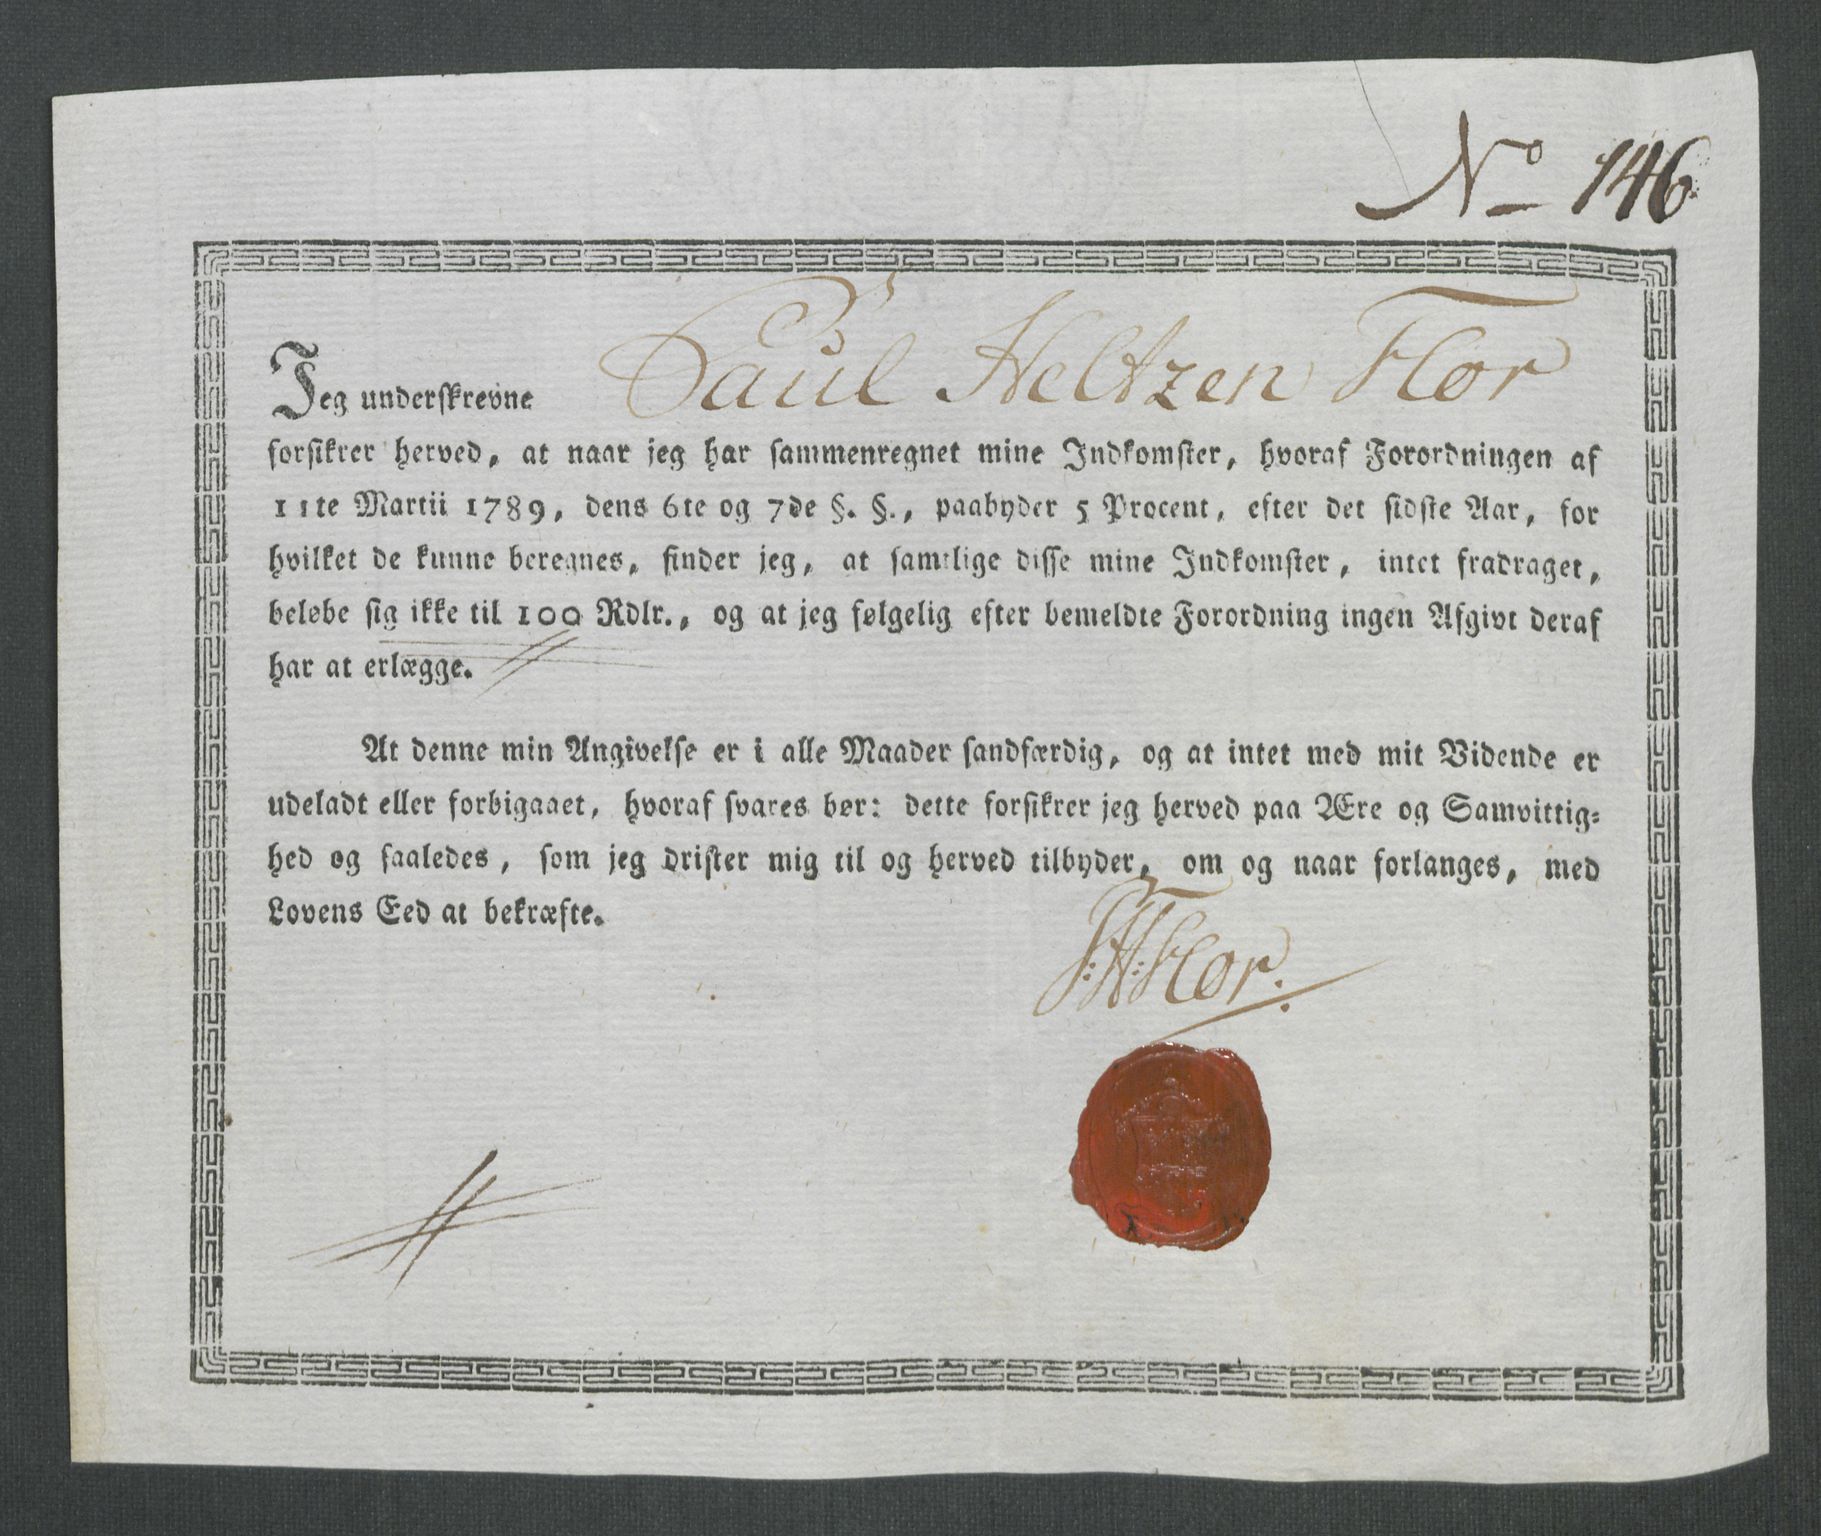 No 146
Jeg underskrevne Paul Heltzen Flor
forsikrer herved, at naar jeg har sammenregnet mine Indkomster, hvoraf Forordningen af
11te Martii 1789, dens 6te og 7de §. §., paabyder 5 Procent, efter det sidste Aar, for
hvilket de kunne beregnes, finder jeg, at samtlige disse mine Indkomster, intet fradraget,
beløbe sig ikke til 100 Rdlr., og at jeg følgelig efter bemeldte Forordning ingen Afgivt deraf
har at erlægge.
At denne min Angivelse er i alle Maader sandfærdig, og at intet med mit Vidende er
udeladt eller forbigaaet, hvoraf svares bør: dette forsikrer jeg herved paa Ære og Samvittig=
hed og saaledes, som jeg drister mig til og herved tilbyder, om og naar forlanges, med
Lovens Eed at bekræfte.
P:H:Flor.